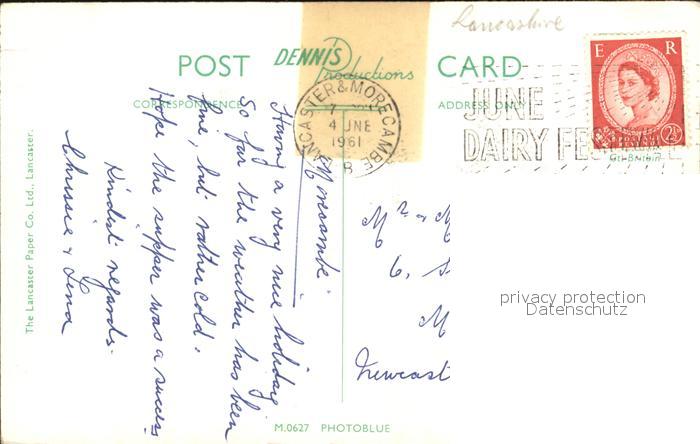 Lancashire
POST DENNIS Productions CARD
CORRESPONDENCE
ADDRESS ONLY
LANCASTER & MORECAMBE
4 JNE
1961
B
JUNE
DAIRY FESTIVAL
E R
2½
Morecambe
Having a very nice holiday
So far the weather has been
fine, but rather cold.
Hope the supper was a success
Kindest regards.
Chrissie & Lena
Mr & M
6, S
M
Newcast
privacy protection
Datenschutz
The Lancaster Paper Co. Ltd., Lancaster.
M.0627 PHOTOBLUE